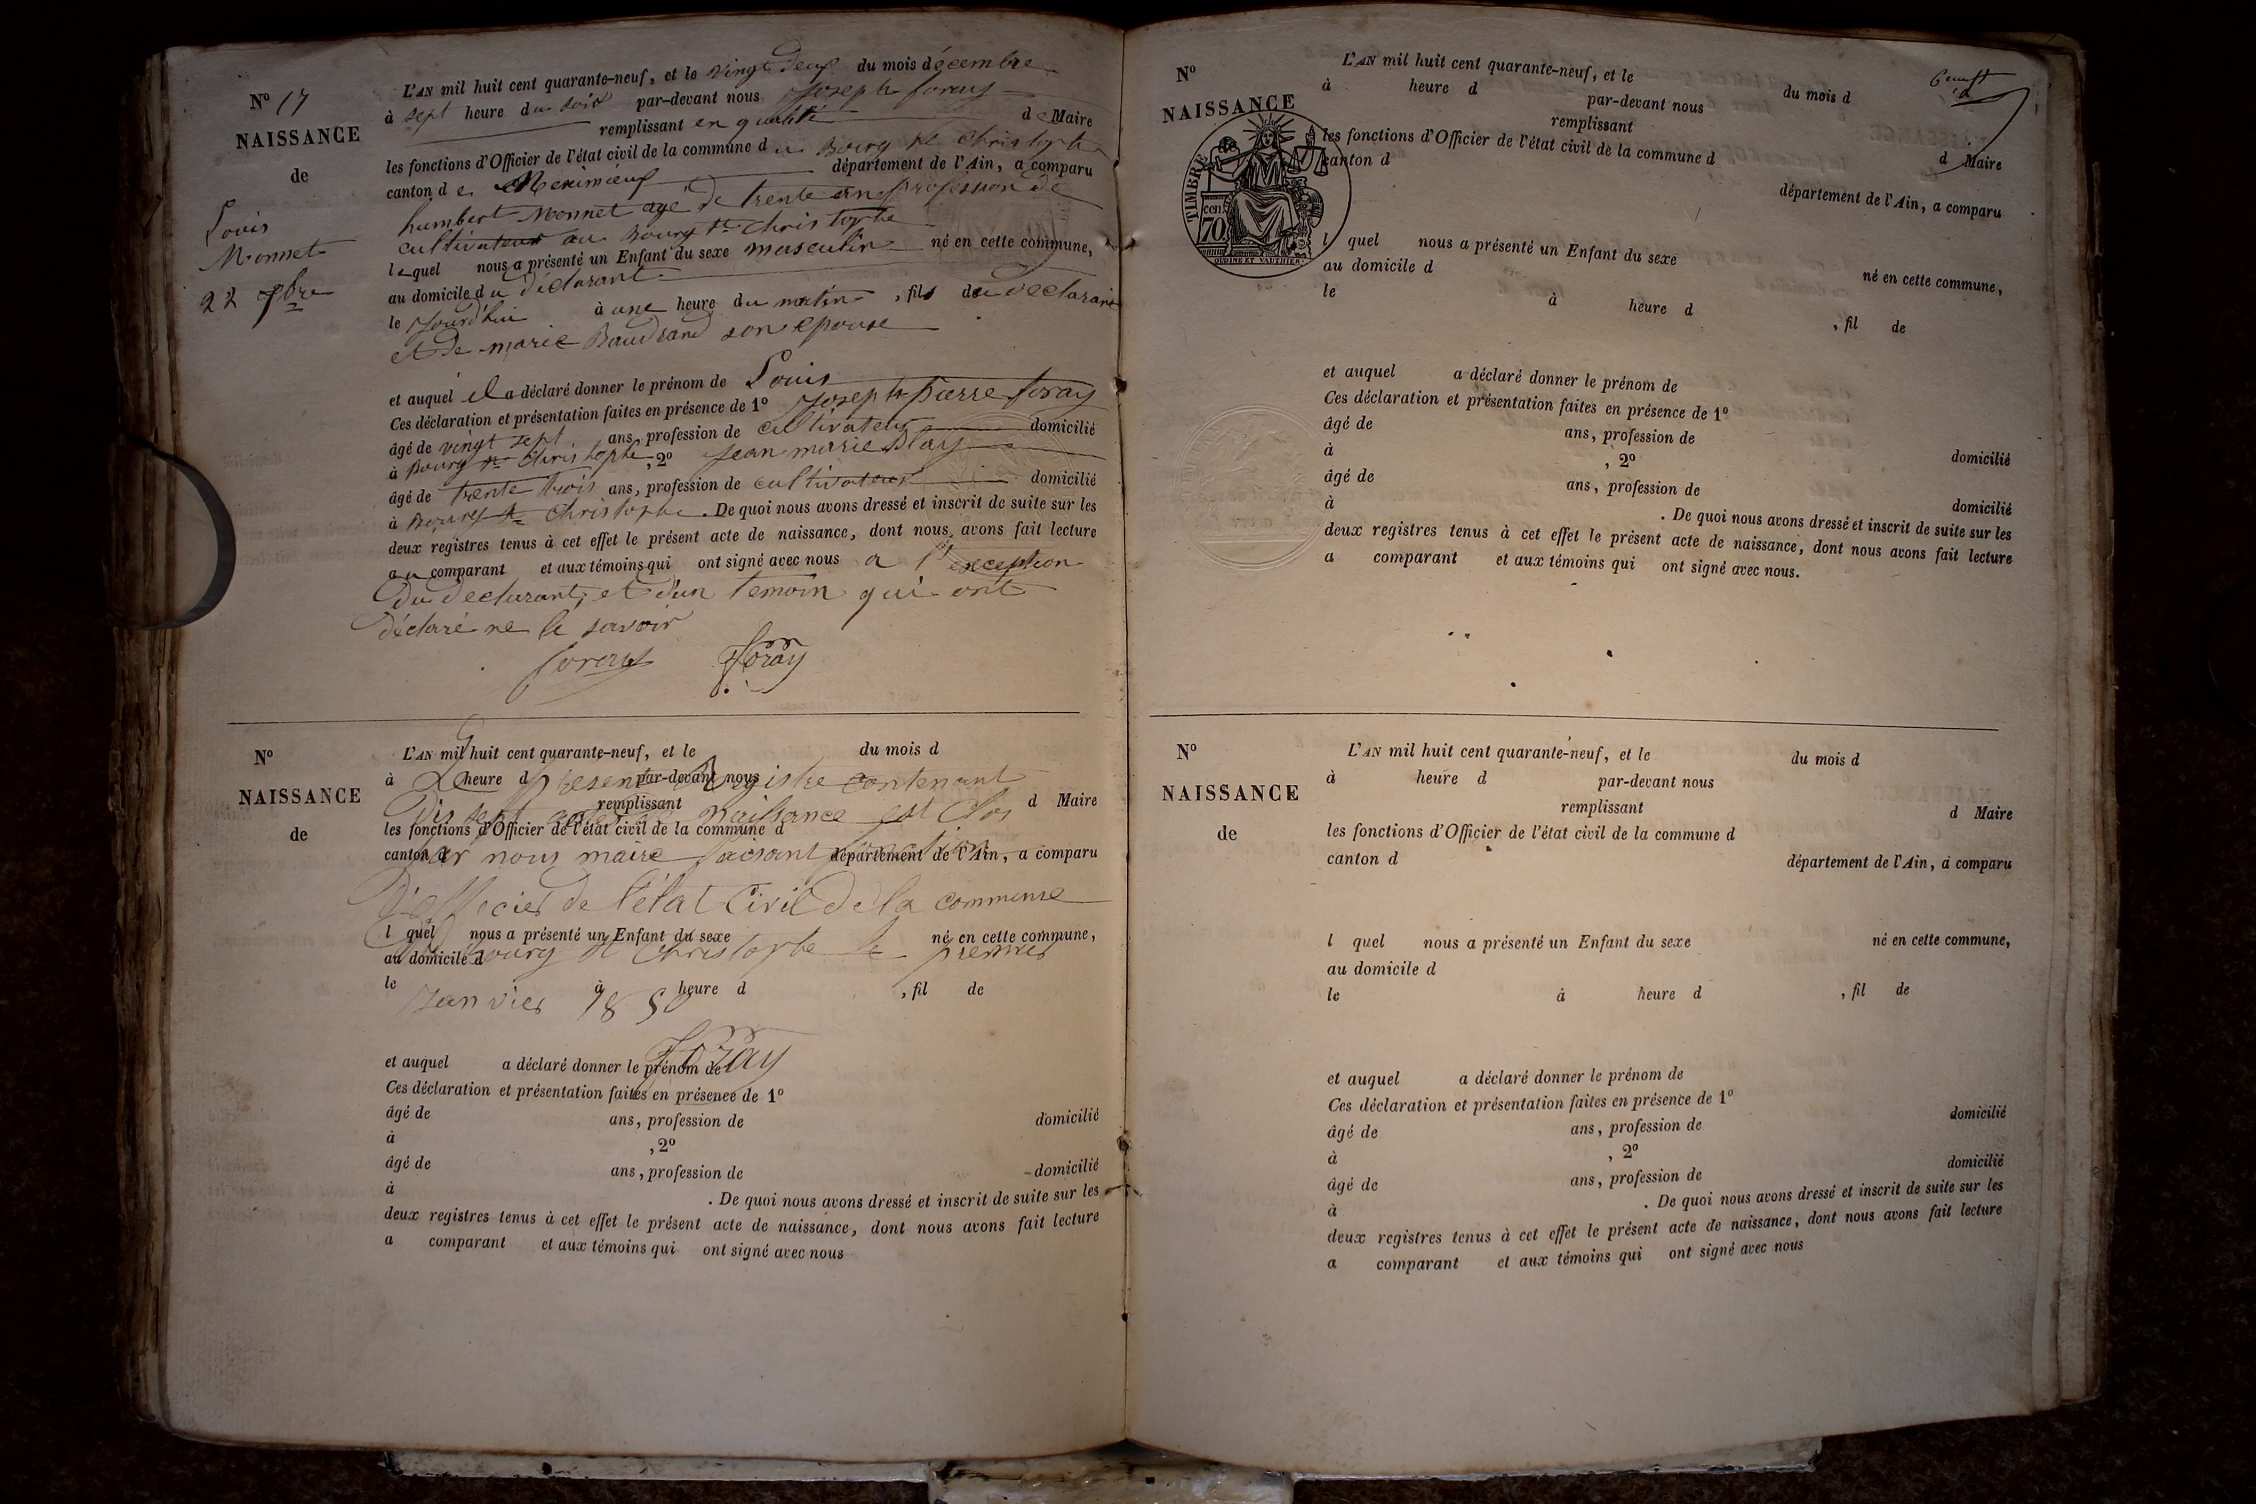 N° 17
NAISSANCE
de
Louis
Monnet
22 Xbre
L'AN mil huit cent quarante-neuf, et le vingt deux du mois décembre
à sept heure du soir par-devant nous Joseph foray
remplissant en qualité de Maire
les fonctions d'Officier de l'état civil de la commune du Bourg St Christophe
canton de Meximieux département de l'Ain, a comparu
humbert Monnet agé de trente ans profession de
cultivateur au Bourg St Christophe
lequel nous a présenté un Enfant du sexe masculin né en cette commune,
au domicile du déclarant
le jourd'hui à une heure du matin, fils du déclarant
et de marie Baudrand son epouse
et auquel il a déclaré donner le prénom de Louis
Ces déclaration et présentation faites en présence de 1° Joseph pierre foray
âgé de vingt sept ans, profession de cultivateur domicilié
à Bourg St Christophe, 2° Jean marie Blay
âgé de trente trois ans, profession de cultivateur domicilié
à Bourg St Christophe. De quoi nous avons dressé et inscrit de suite sur les
deux registres tenus à cet effet le présent acte de naissance, dont nous avons fait lecture
au comparant et aux témoins qui ont signé avec nous a l'exception
du déclarant, et d'un témoin qui ont
déclaré ne le savoir
foray Foray
N°
NAISSANCE
de
L'AN mil huit cent quarante-neuf, et le du mois d
à heure d par-devant nous
Le présent Registre contenant
remplissant d Maire
Dix sept actes de naissance est Clos
les fonctions d'Officier de l'état civil de la commune d
canton d département de l'Ain, a comparu
par nous maire faisant fonction
D'officier de l'état Civil de la commune
l quel nous a présenté un Enfant du sexe né en cette commune,
au domicile d
Bourg St Christophe le premier
le à heure d , fil de
Janvier 1850
Foray
et auquel a déclaré donner le prénom de
Ces déclaration et présentation faites en présence de 1°
âgé de ans, profession de domicilié
à , 2°
âgé de ans, profession de domicilié
à . De quoi nous avons dressé et inscrit de suite sur les
deux registres tenus à cet effet le présent acte de naissance, dont nous avons fait lecture
a comparant et aux témoins qui ont signé avec nous
N°
NAISSANCE
TIMBRE
70 cen
ORDINE ET VAUTHIER
L'AN mil huit cent quarante-neuf, et le du mois d
à heure d par-devant nous
remplissant d Maire
les fonctions d'Officier de l'état civil de la commune d
canton d département de l'Ain, a comparu
l quel nous a présenté un Enfant du sexe né en cette commune,
au domicile d
le à heure d , fil de
et auquel a déclaré donner le prénom de
Ces déclaration et présentation faites en présence de 1°
âgé de ans, profession de domicilié
à , 2°
âgé de ans, profession de domicilié
à . De quoi nous avons dressé et inscrit de suite sur les
deux registres tenus à cet effet le présent acte de naissance, dont nous avons fait lecture
a comparant et aux témoins qui ont signé avec nous.
N°
NAISSANCE
de
L'AN mil huit cent quarante-neuf, et le du mois d
à heure d par-devant nous
remplissant d Maire
les fonctions d'Officier de l'état civil de la commune d
canton d département de l'Ain, a comparu
l quel nous a présenté un Enfant du sexe né en cette commune,
au domicile d
le à heure d , fil de
et auquel a déclaré donner le prénom de
Ces déclaration et présentation faites en présence de 1°
âgé de ans, profession de domicilié
à , 2°
âgé de ans, profession de domicilié
à . De quoi nous avons dressé et inscrit de suite sur les
deux registres tenus à cet effet le présent acte de naissance, dont nous avons fait lecture
a comparant et aux témoins qui ont signé avec nous